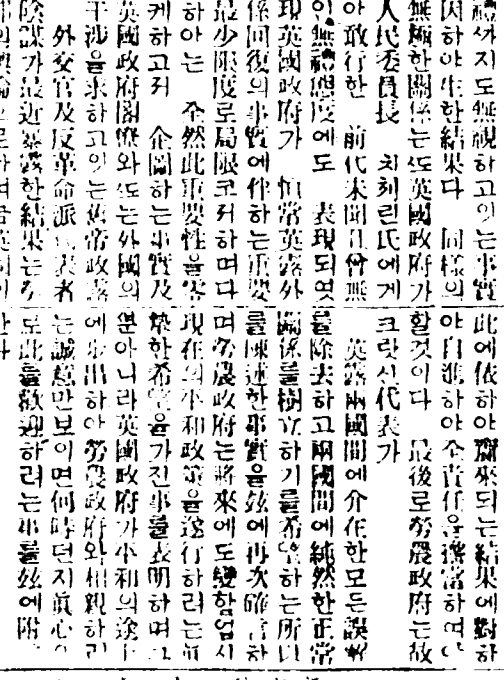 禮ᄭᅡ지도無視하고잇는事實
因하야生한結果다 同樣의
無極한關係는ᄯᅩ英國政府가
人民委員長 치처린氏에게
아敢行한 前代未聞且曾無
인無禮態度에도 表現되엿
現英國政府가 恒常英露外
係回復의事實에伴하는重要
最少限度로局限코저하며다
하야는 全然此重要性을等
케하고저 企圖하는事實及
英國政府閣僚와ᄯᅩ는外國의
干涉을求하고잇는舊帝政露
外交官及反革命派代表者
陰謀가最近暴露한結果는各
此에依하야齎來되는結果에對하
야自進하야全責任을擔當하여야
할것이다 最後로勞農政府는故
크랏신代表가
英露兩國間에介在한모든誤解
를除去하고兩國間에純然한正常
關係를樹立하기를希望하는所以
를陳述한事實을玆에再次確言하
며勞農政府는將來에도變함업시
現在의平和政策을遂行하려는眞
摯한希望을가진事를表明하며그
ᄲᅮᆫ아니라英國政府가平和의途上
에步出하야勞農政府와相親하려
는誠意만보이면何時던지眞心으
로此를歡迎하려는事를玆에附
한다